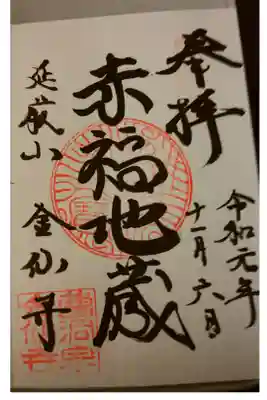 奉拝
令和元年
十一月六日
赤福地蔵
延嶺山
金仙寺